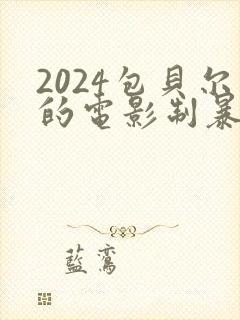 2024包貝尔
的電影制暴
藍鸞